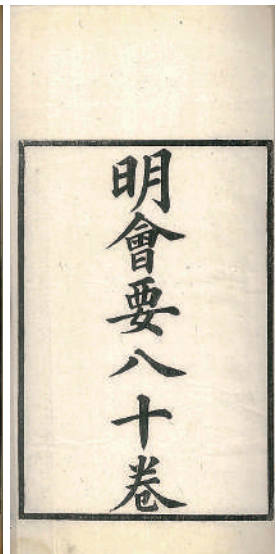 明會要八十卷